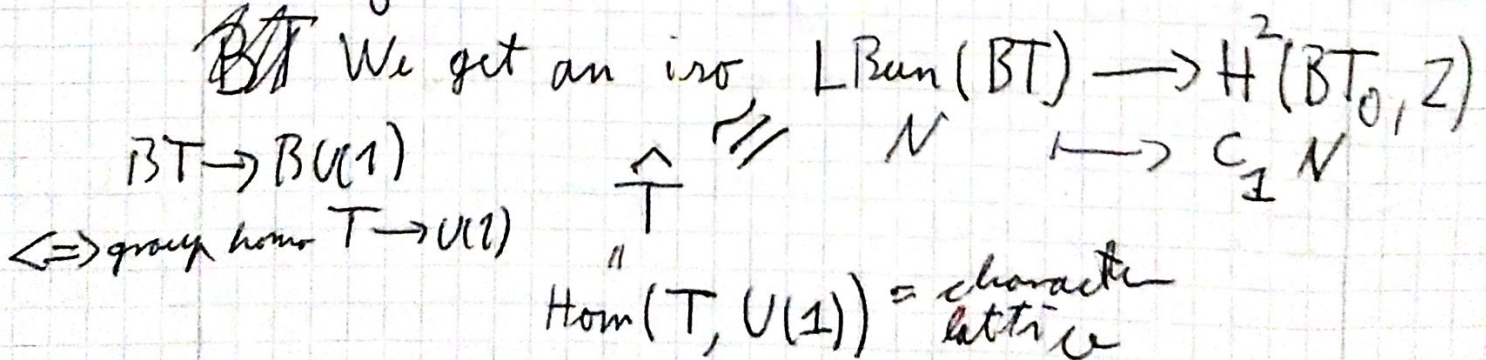 We get an iso LBun(BT) ⟶ H²(BT₀, Z)
BT → BU(1)
N ⟼ C₁ N
T̂
<=> group homo T → U(1)
Hom(T, U(1)) = character
lattice